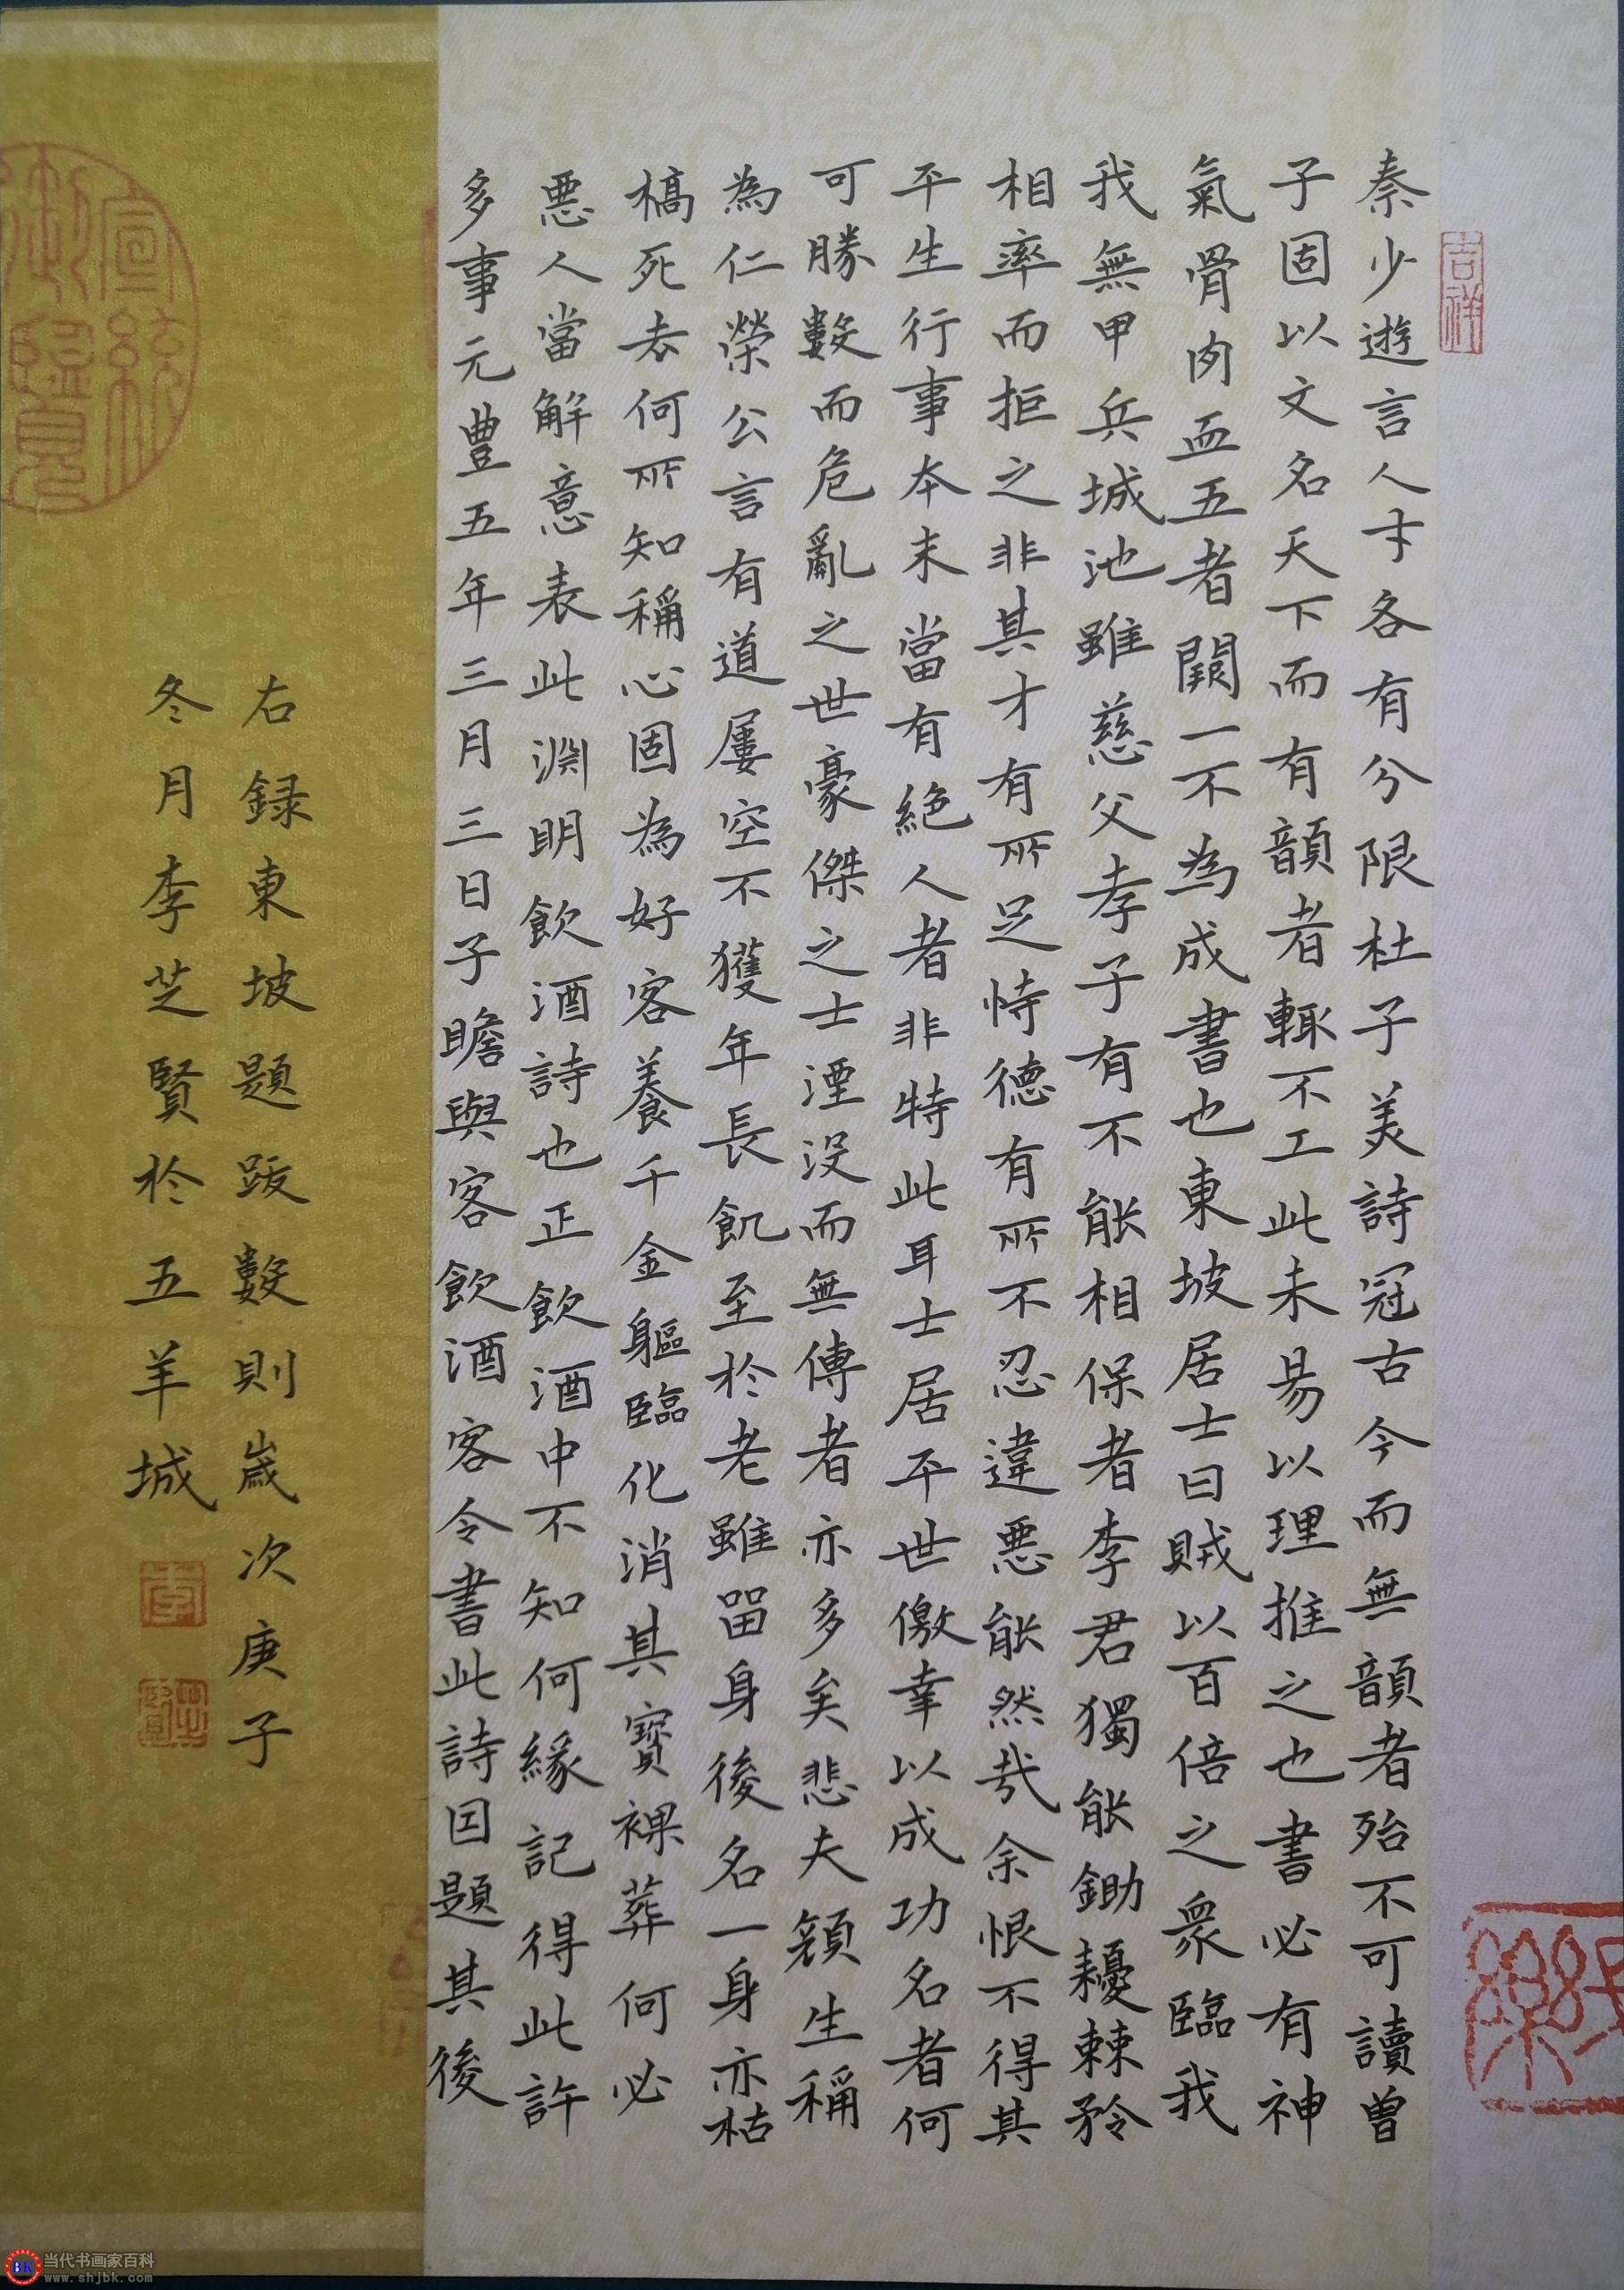 秦少遊言人才各有分限杜子美詩冠古今而無韻者殆不可讀曾
子固以文名天下而有韻者輒不工此未易以理推之也書必有神
氣骨肉血五者闕一不為成書也東坡居士曰賊以百倍之衆臨我
我無甲兵城池雖慈父孝子有不能相保者李君獨能鋤耰棘矜
相率而拒之非其才有所足恃德有所不忍違惡能然哉余恨不得其
平生行事本末當有絕人者非特此耳士居平世儌幸以成功名者何
可勝數而危亂之世豪傑之士湮没而無傳者亦多矣悲夫顏生稱
為仁榮公言有道屢空不獲年長飢至於老雖留身後名一身亦枯
槁死去何所知稱心固為好客養千金軀臨化消其寶裸葬何必
惡人當解意表此淵明飲酒詩也正飲酒中不知何緣記得此許
多事元豊五年三月三日子瞻與客飲酒客令書此詩因題其後
右録東坡題跋數則歲次庚子
冬月李芝賢於五羊城
吉祥
宣統御覽
當代书画家百科
www.shjbk.com